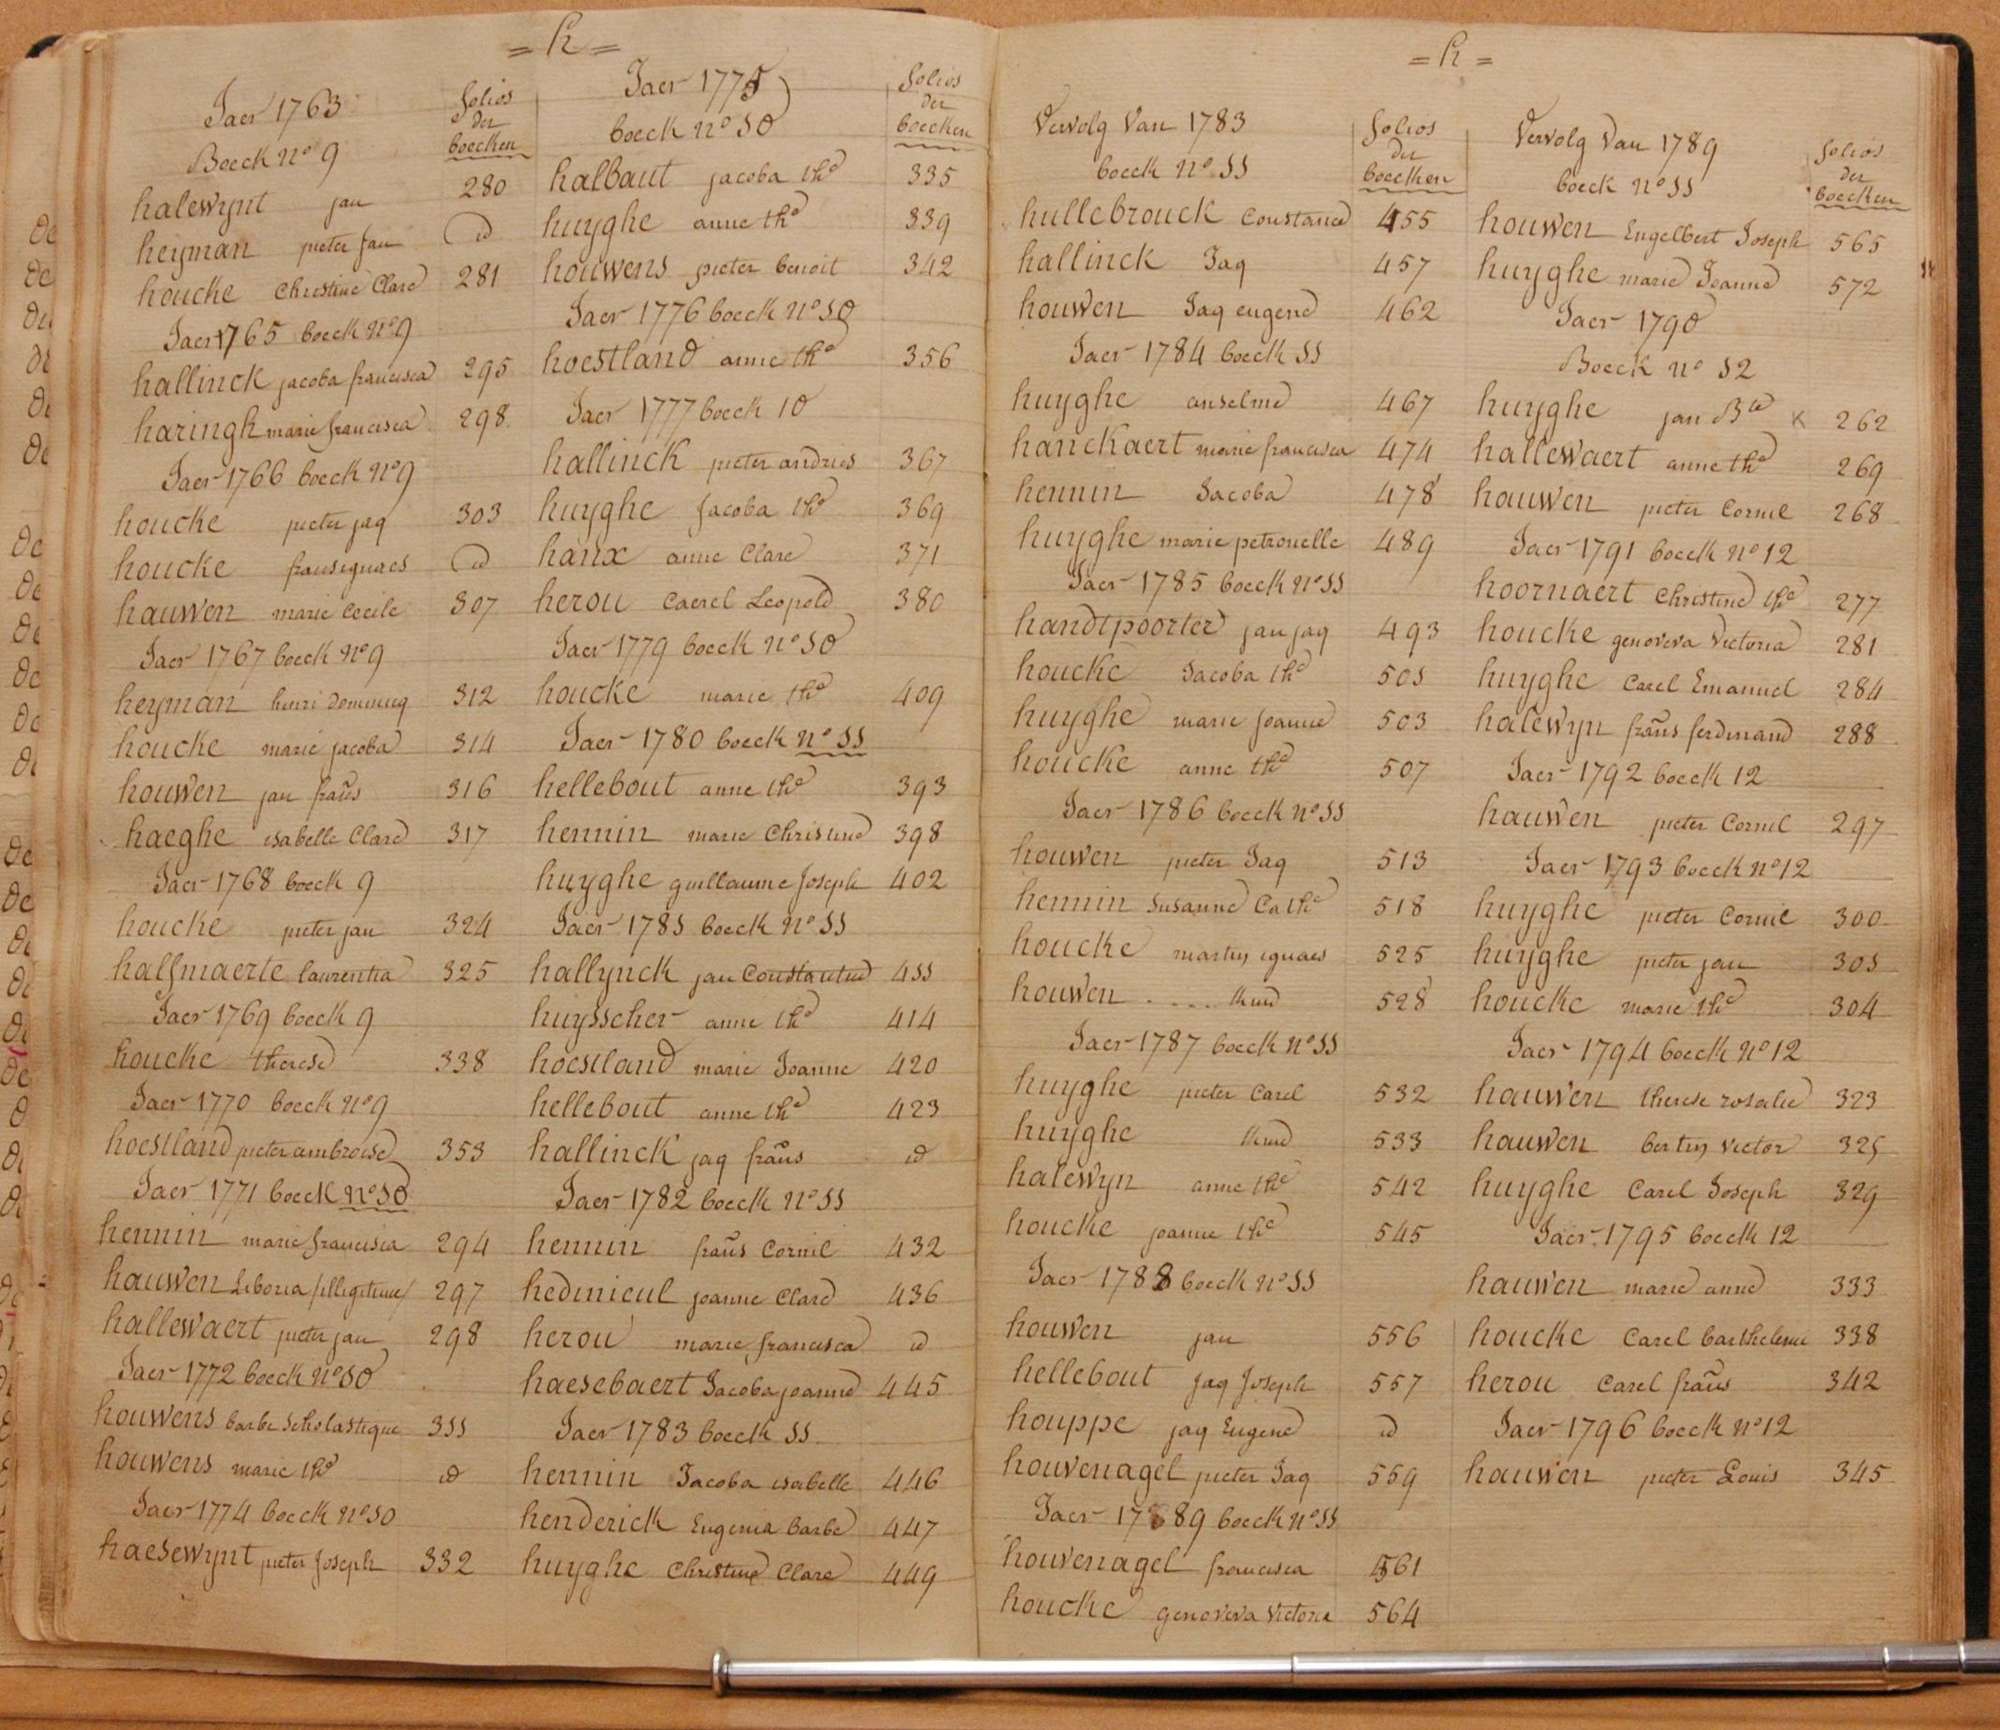 = h =
Jaer 1763
Boeck n° 9
folios
der
boecken
halewynt jan 280
heyman pieter jan id
houcke Christine Clare 281
Jaer 1765 boeck n° 9
hallinck jacoba francisca 295
haringh marie francisca 298
Jaer 1766 boeck n° 9
houcke pieter jaq 303
houcke fransignaes id
hauwen marie Cecile 307
Jaer 1767 boeck n° 9
heyman henri Dominicq 312
houcke marie jacoba 314
houwen jan frans 316
haeghe isabelle Clare 317
Jaer 1768 boeck 9
houcke pieter jan 324
halsmaerte laurentia 325
Jaer 1769 boeck 9
houcke therese 338
Jaer 1770 boeck n° 9
hoestland pieter ambroise 353
Jaer 1771 boeck n° 10
hennin marie francisca 294
hauwen Liboria illigitime 297
hallewaert pieter jan 298
Jaer 1772 boeck n° 10
houwens barbe scholastique 311
houwens marie the id
Jaer 1774 boeck n° 10
haesewynt pieter joseph 332
Jaer 1775
boeck n° 10
folios
der
boecken
halbaut jacoba the 335
huyghe anne the 339
houwens pieter benoit 342
Jaer 1776 boeck n° 10
hoestland anne the 356
Jaer 1777 boeck 10
hallinck pieter andries 367
huyghe jacoba the 369
hanx anne Clare 371
herou Caerel Leopold 380
Jaer 1779 boeck n° 10
houcke marie the 409
Jaer 1780 boeck n° 11
hellebout anne the 393
hennin marie Christine 398
huyghe guillaume joseph 402
Jaer 1781 boeck n° 11
hallynck jan Constantin 411
huysscher anne the 414
hoestland marie Joanne 420
hellebout anne the 423
hallinck jaq frans id
Jaer 1782 boeck n° 11
hennin frans Cornil 432
hedinieul joanne Clare 436
herou marie francisca id
haesebaert Jacoba joanne 445
Jaer 1783 boeck 11
hennin Jacoba isabelle 446
henderick Eugenia barbe 447
huyghe Christine Clare 449
= h =
Vervolg Van 1783
boeck n° 11
folios
der
boecken
hullebrouck Constance 455
hallinck Jaq 457
houwen Jaq eugene 462
Jaer 1784 boeck 11
huyghe anselme 467
hanckaert marie francisca 474
hennin Jacoba 478
huyghe marie petronelle 489
Jaer 1785 boeck n° 11
handtpoorter jan jaq 493
houcke Jacoba the 501
huyghe marie joanne 503
houcke anne the 507
Jaer 1786 boeck n° 11
houwen pieter Jaq 513
hennin Susanne Cathe 518
houcke martin ignaes 525
houwen .... 528
Jaer 1787 boeck n° 11
huyghe pieter Carel 532
huyghe 533
halewyn anne the 542
houcke joanne the 545
Jaer 1788 boeck n° 11
houwen jan 556
hellebout jaq Joseph 557
houppe jaq Eugene id
houvenagel pieter Jaq 559
Jaer 1789 boeck n° 11
houvenagel francisca 561
houcke genoveva Victoria 564
Vervolg Van 1789
boeck n° 11
folios
der
boecken
houwen Engelbert Joseph 565
huyghe marie Joanne 572
Jaer 1790
Boeck n° 12
huyghe jan Bte x 262
hallewaert anne the 269
hauwen pieter Cornil 268
Jaer 1791 boeck n° 12
hoornaert Christine the 277
houcke genoveva Victoria 281
huyghe Carel Emanuel 284
halewyn frans ferdinand 288
Jaer 1792 boeck 12
hauwen pieter Cornil 297
Jaer 1793 boeck n° 12
huyghe pieter Cornil 300
huyghe pieter jan 301
houcke marie the 304
Jaer 1794 boeck n° 12
hauwen therese rosalie 323
hauwen bertin Victor 325
huyghe Carel Joseph 329
Jaer 1795 boeck 12
hauwen marie anne 333
houcke Carel barthelemi 338
herou Carel frans 342
Jaer 1796 boeck n° 12
hauwen pieter Louis 345